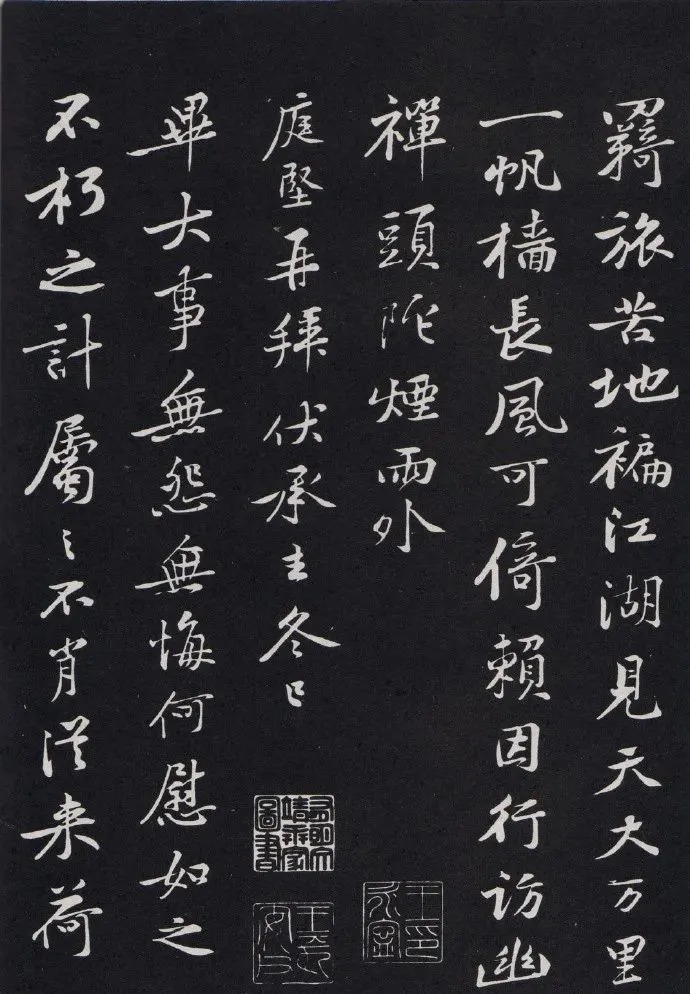 羇旅苦地褊江湖見天大万里
一帆檣長風可倚賴因行訪幽
禪頭陀煙雨外
庭堅再拜伏承去冬已
畢大事無怨無悔何慰如之
不朽之計屬〻不肖從来荷